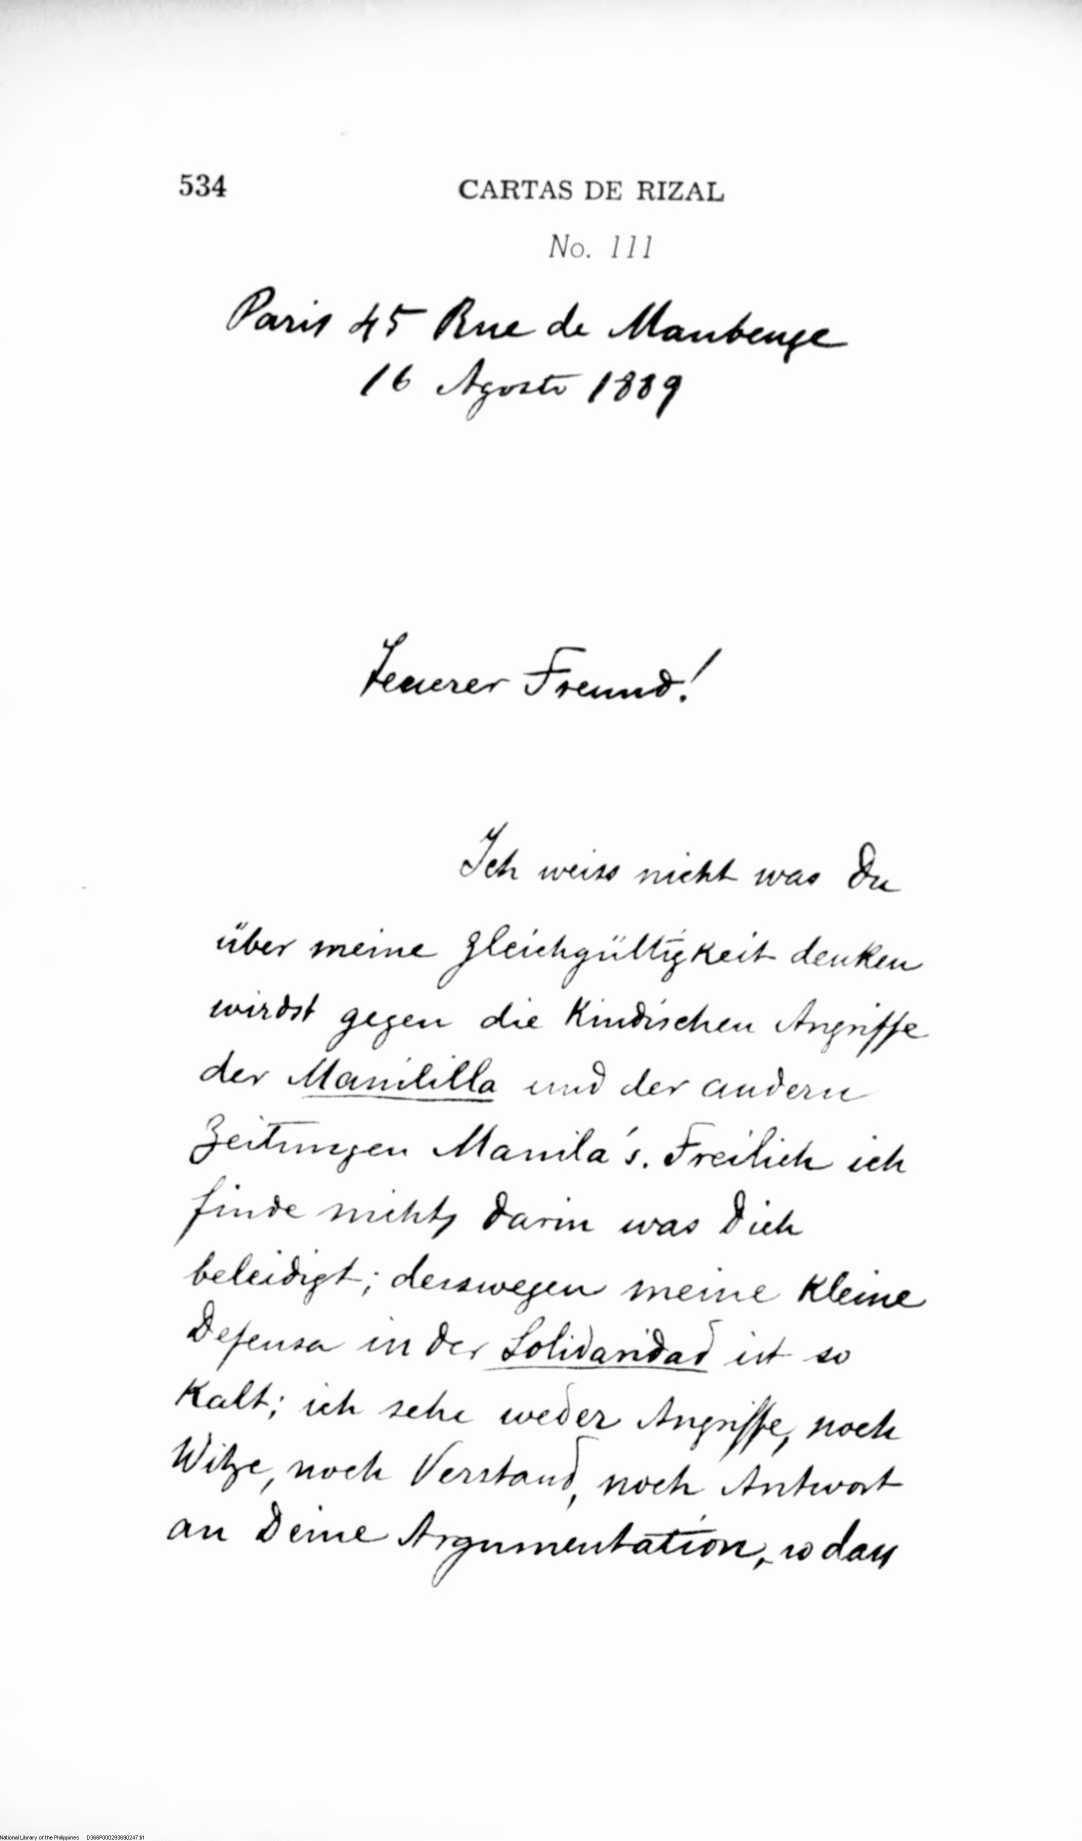 534
CARTAS DE RIZAL
No. 111
Paris 45 Rue de Maubeuge
16 Agosto 1889
Teuerer Freund!
Ich weiss nicht was Du
über meine gleichgültigkeit denken
wirdst gegen die kindischen Angriffe
der Manililla und der andern
Zeitungen Manila's. Freilich ich
finde nichts darin was Dich
beleidigt; desswegen meine kleine
Defensa in der Solidaridad ist so
kalt; ich sehe weder Angriffe, noch
Witze, noch Verstand, noch Antwort
an Deine Argumentation, so dass
National Library of the Philippines